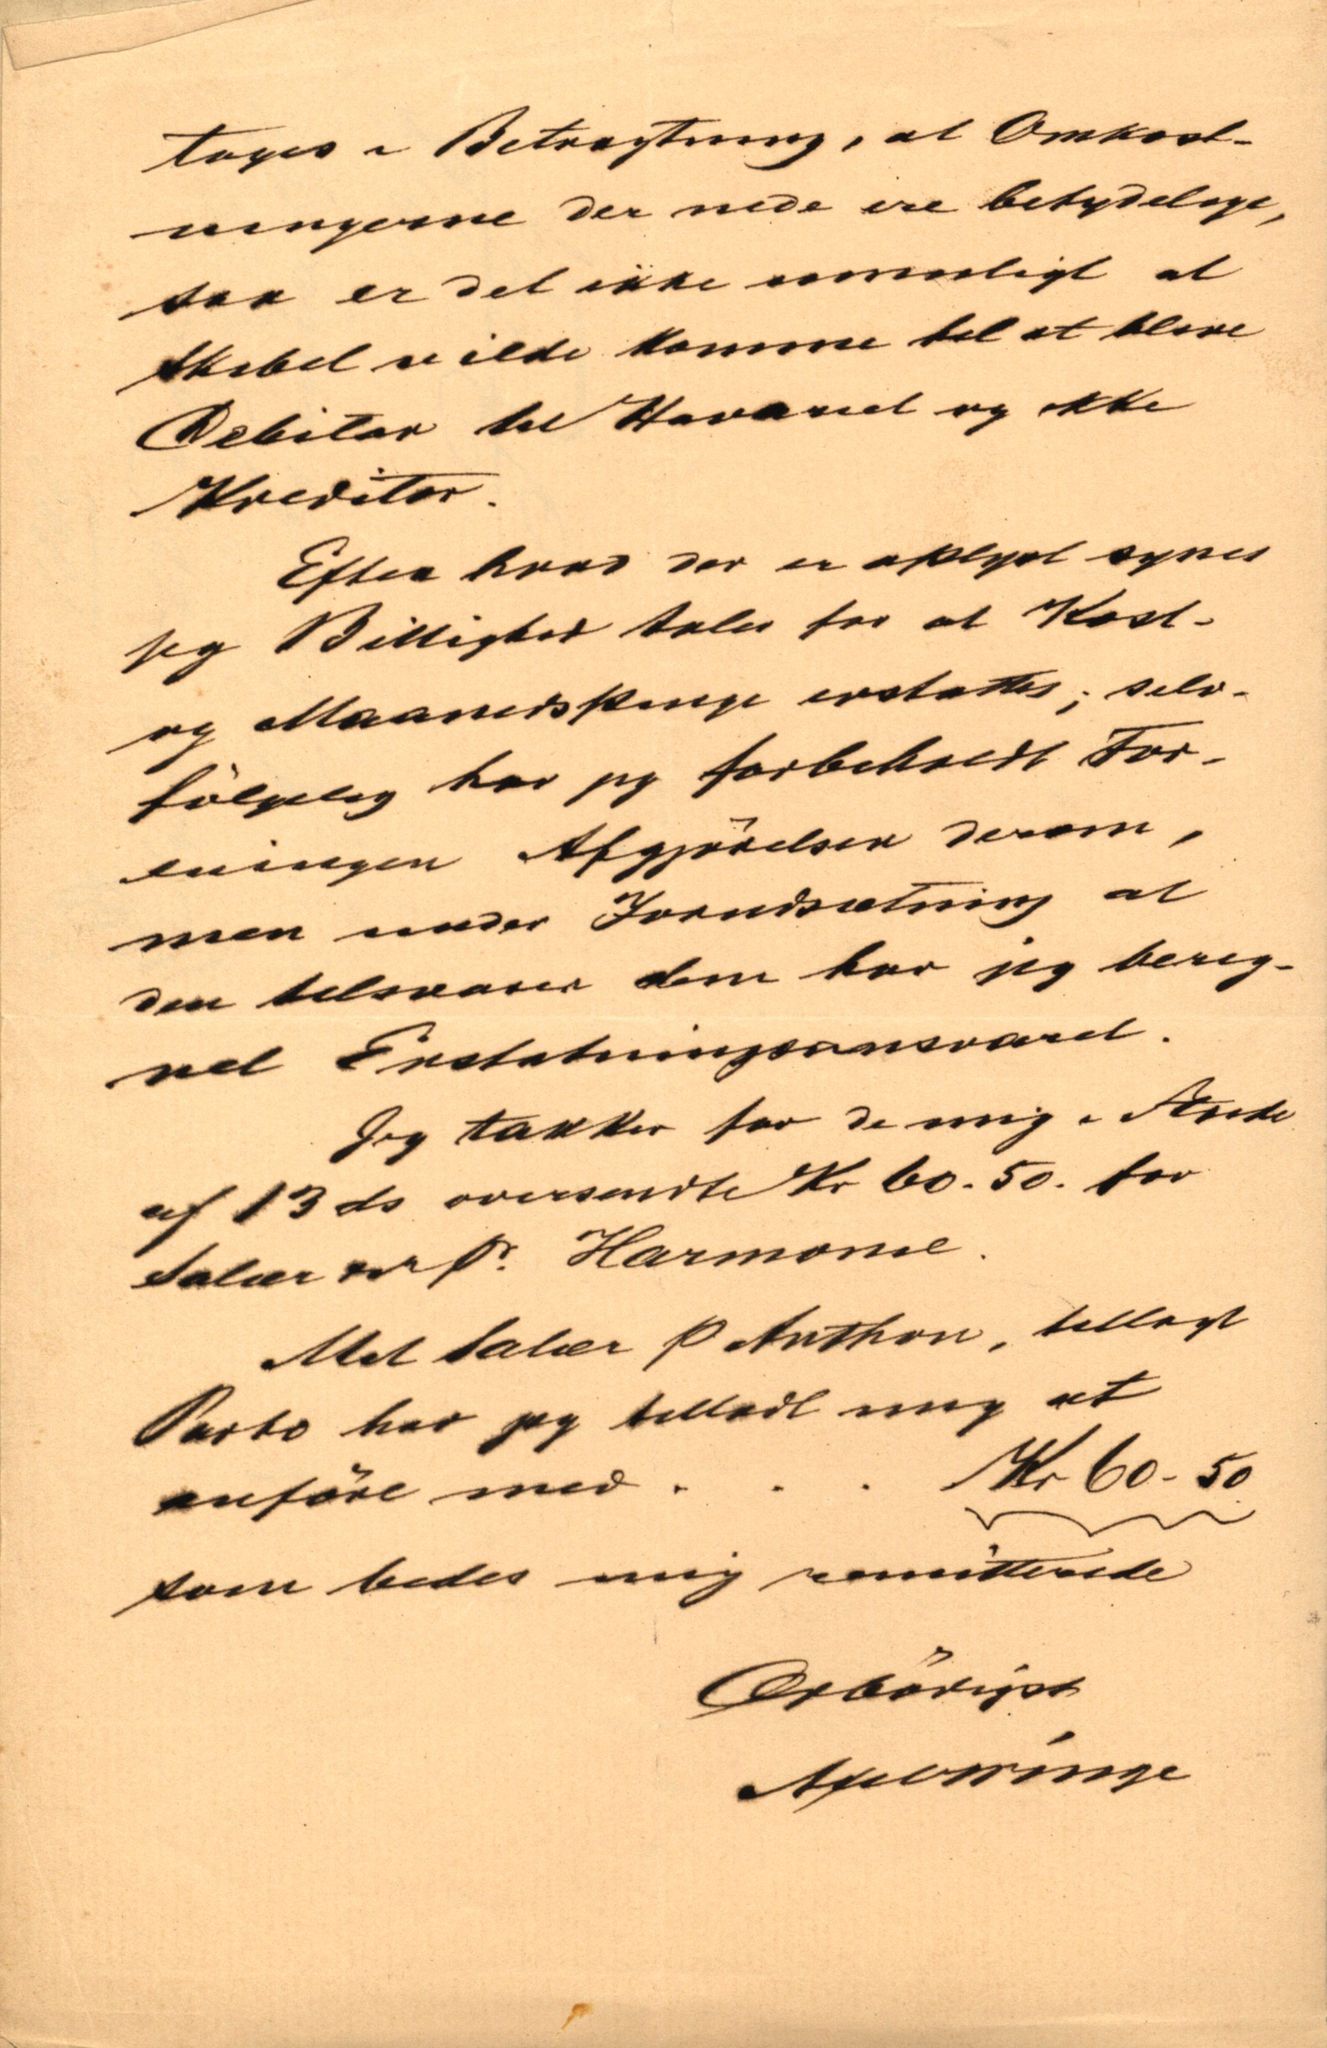 tages i Betragtning, at Omkost-
ningerne der nede ere betydelige,
saa er det ikke umuligt at
Skibet vilde komme til at blive
Debitor til Havariet og ikke
Kreditor.
Efter hvad der er oplyst synes
jeg Billighed taler for at Kost-
og Maanedspenge erstattes; selv-
følgelig har jeg forbeholdt For-
eningen Afgjörelsen derom,
men under Forudsætning at
den tilsvarer dem har jeg bereg-
net Erstatningsansvaret.
Jeg takker for de mig i Ærede
af 13 ds oversendte Kr 60.50. for
Salær Pr. Harmonie.
Mit Salær P Anthon, tillagt
Porto har jeg tilladt mig at
anföre med . . . Kr 60-50
som bedes mig remitterede
Ærbödigst
Axel Winge